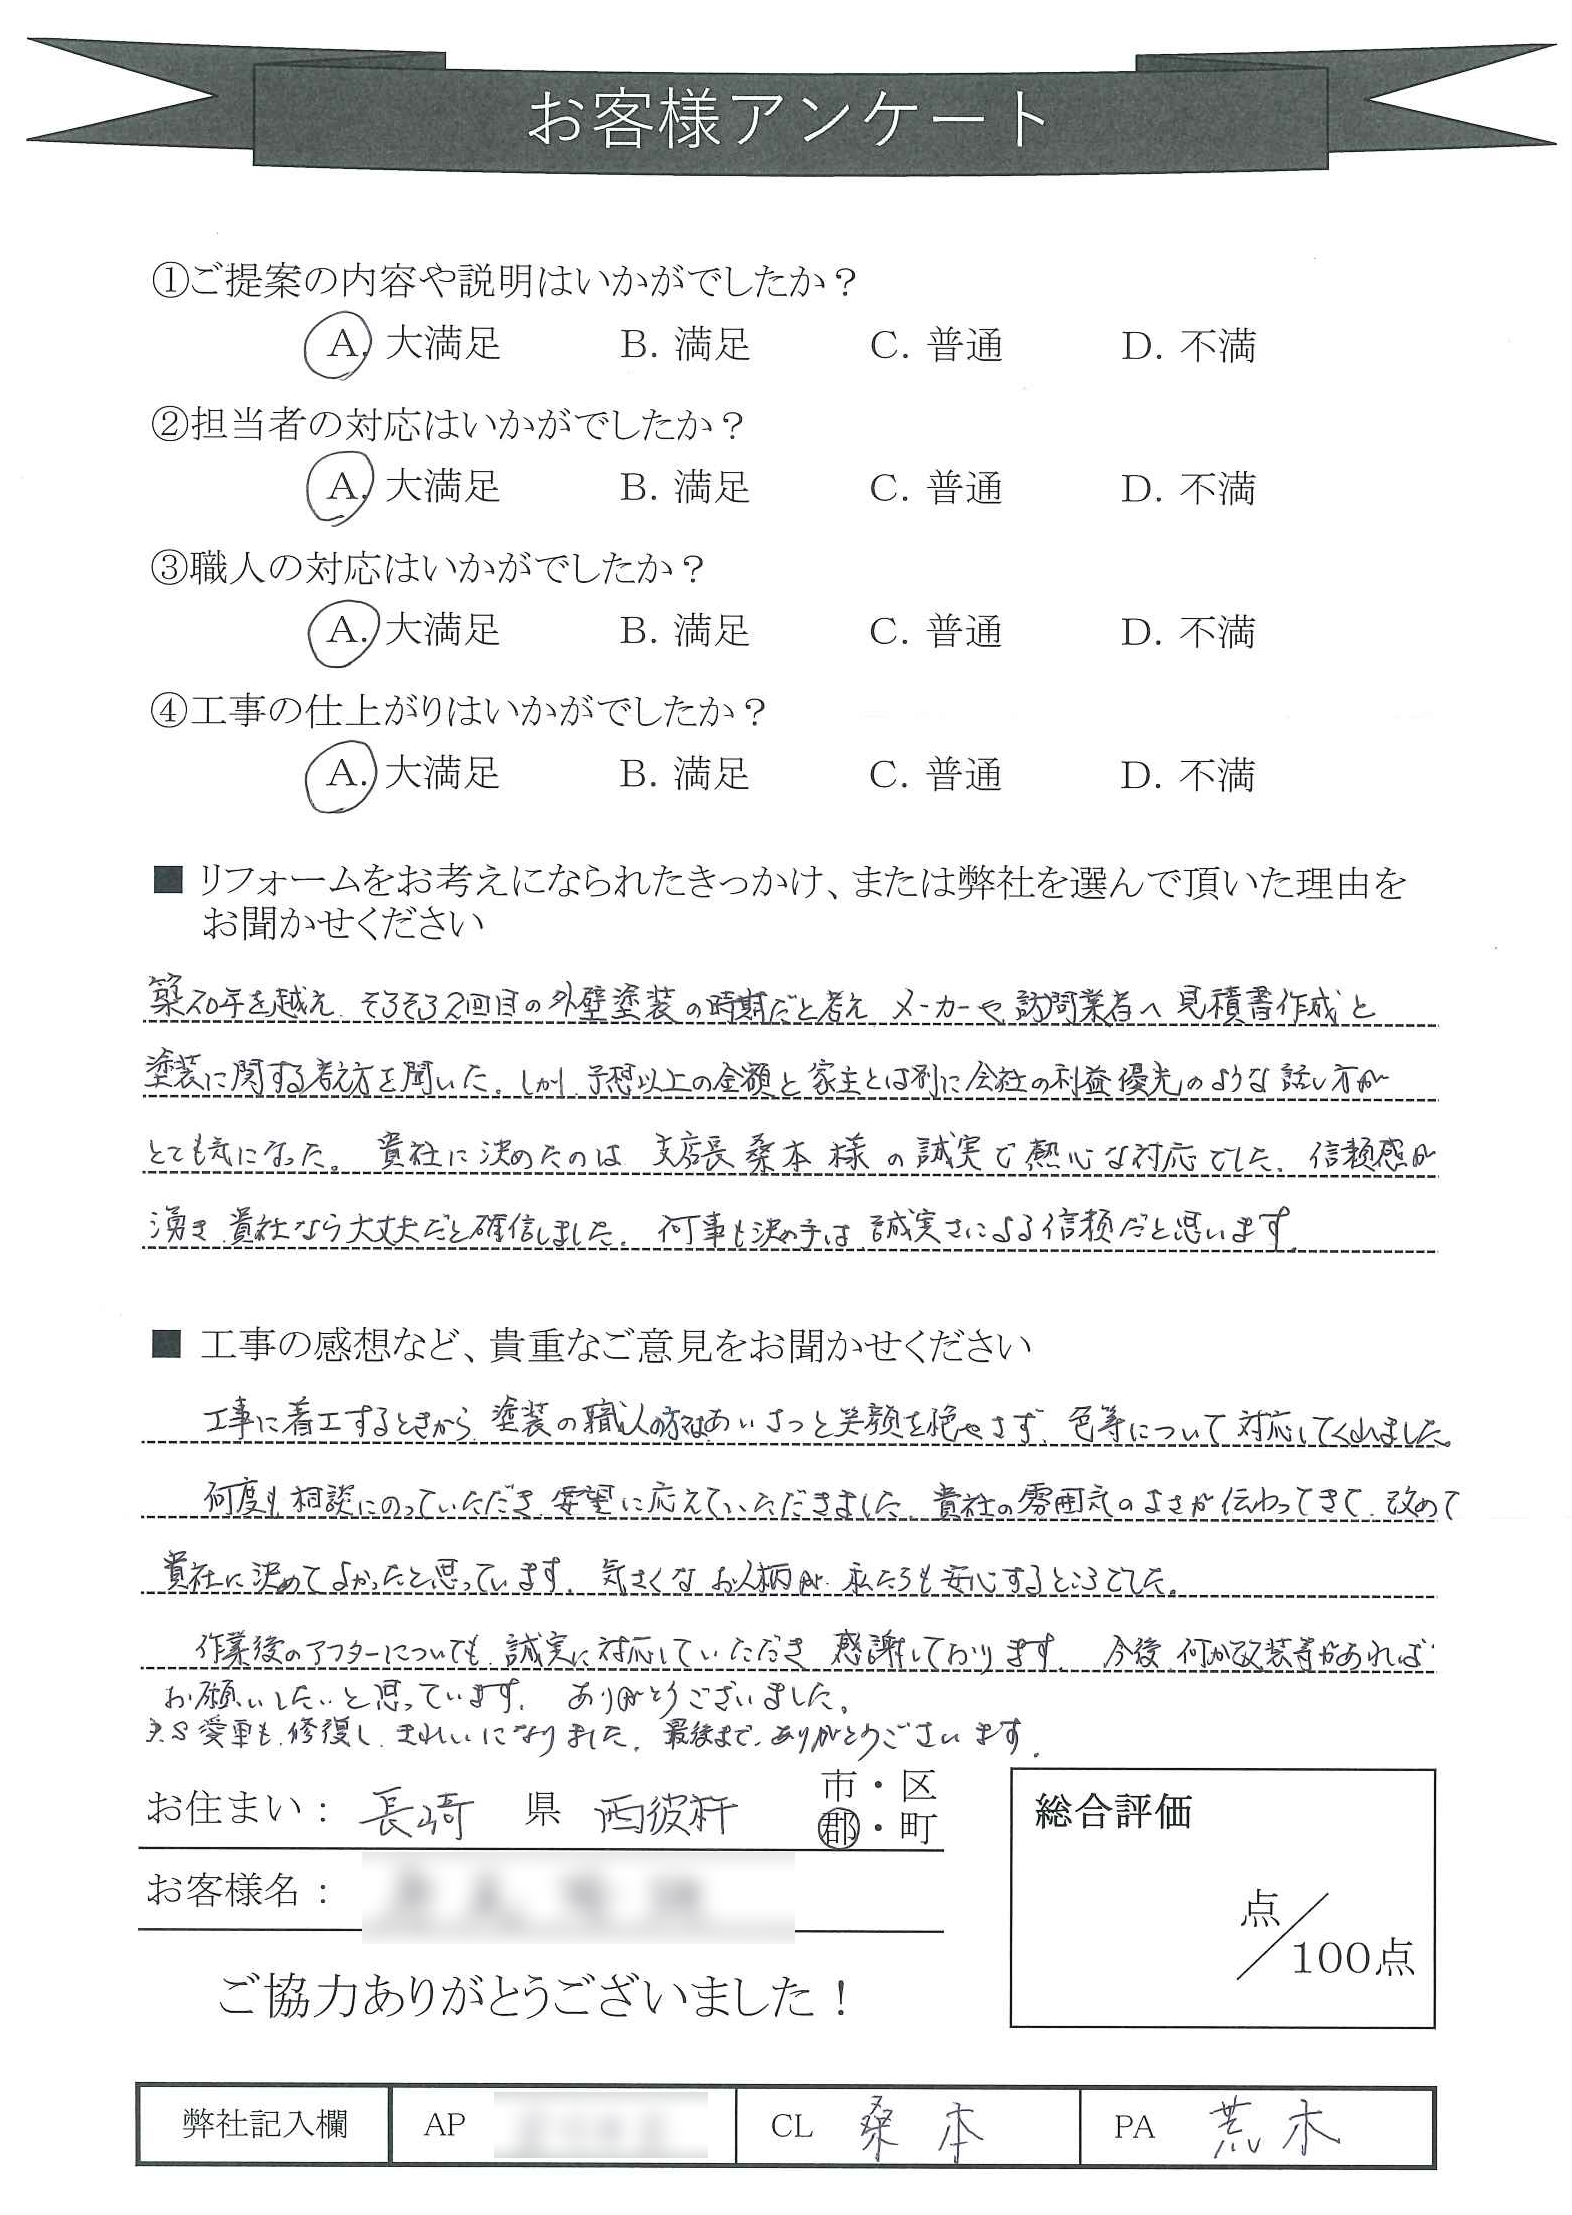 お客様アンケート
①ご提案の内容や説明はいかがでしたか？
A. 大満足 B. 満足 C. 普通 D. 不満
②担当者の対応はいかがでしたか？
A. 大満足 B. 満足 C. 普通 D. 不満
③職人の対応はいかがでしたか？
A. 大満足 B. 満足 C. 普通 D. 不満
④工事の仕上がりはいかがでしたか？
A. 大満足 B. 満足 C. 普通 D. 不満
■ リフォームをお考えになられたきっかけ、または弊社を選んで頂いた理由を
お聞かせください
築20年を越え、そろそろ2回目の外壁塗装の時期だと考え メーカーや訪問業者へ見積書作成と
塗装に関する考え方を聞いた。しかし、予想以上の金額と家主とは別に会社の利益優先のような話し方が
とても気になった。 貴社に決めたのは 支店長 桑本様の誠実で熱心な対応でした。信頼感が
湧き、貴社なら大丈夫だと確信しました。何事も決め手は、誠実さによる信頼だと思います。
■ 工事の感想など、貴重なご意見をお聞かせください
工事に着工するときから、塗装の職人の方はあいさつと笑顔を絶やさず、色等について対応してくれました。
何度も相談にのっていただき、要望に応えていただきました。貴社の雰囲気のよさが伝わってきて、改めて
貴社に決めてよかったと思っています。気さくなお人柄が、私たちも安心するところでした。
作業後のアフターについても、誠実に対応していただき 感謝しております。 今後、何か改装等があれば
お願いしたいと思っています。 ありがとうございました。
P.S 愛車も、修復し、きれいになりました。最後まで、ありがとうございます。
お住まい： 長崎 県 西彼杵 市・区
郡・町
お客様名：
総合評価
点／100点
ご協力ありがとうございました！
弊社記入欄 AP CL 桑本 PA 荒木